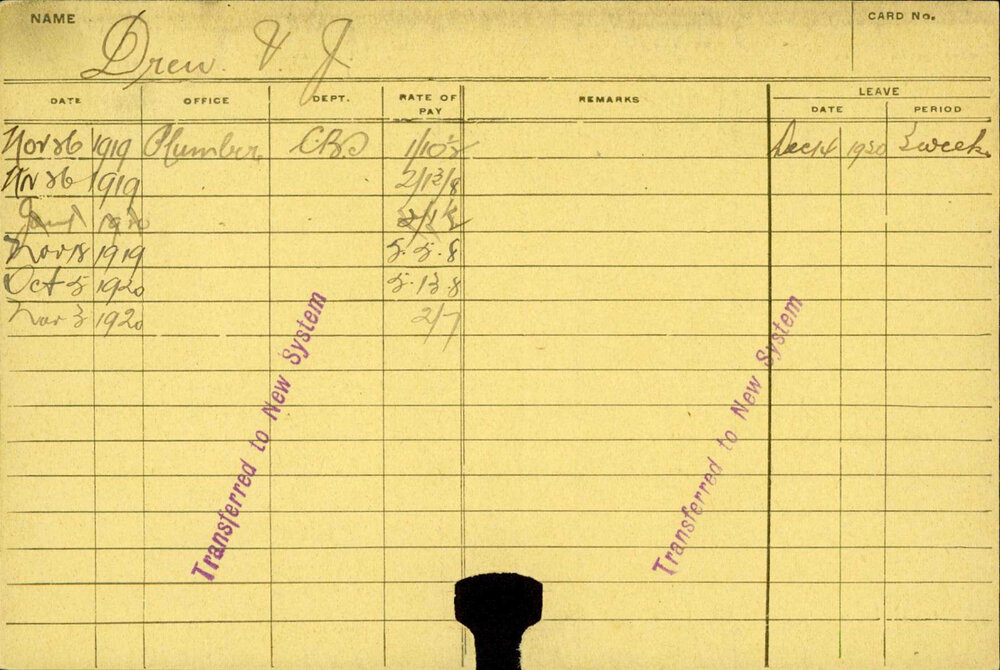 NAME Drew. V. J. CARD No.
DATE OFFICE DEPT. RATE OF PAY REMARKS LEAVE
DATE PERIOD
Nov 26 1919 Plumber Dec 14 1920 3 weeks
Nov 26 1919
Jan 1 1920
Nov 18 1919 5.5.8
Oct 5 1920 5.13.8
Nov 3 1920 2/7
Transferred to New System
Transferred to New System